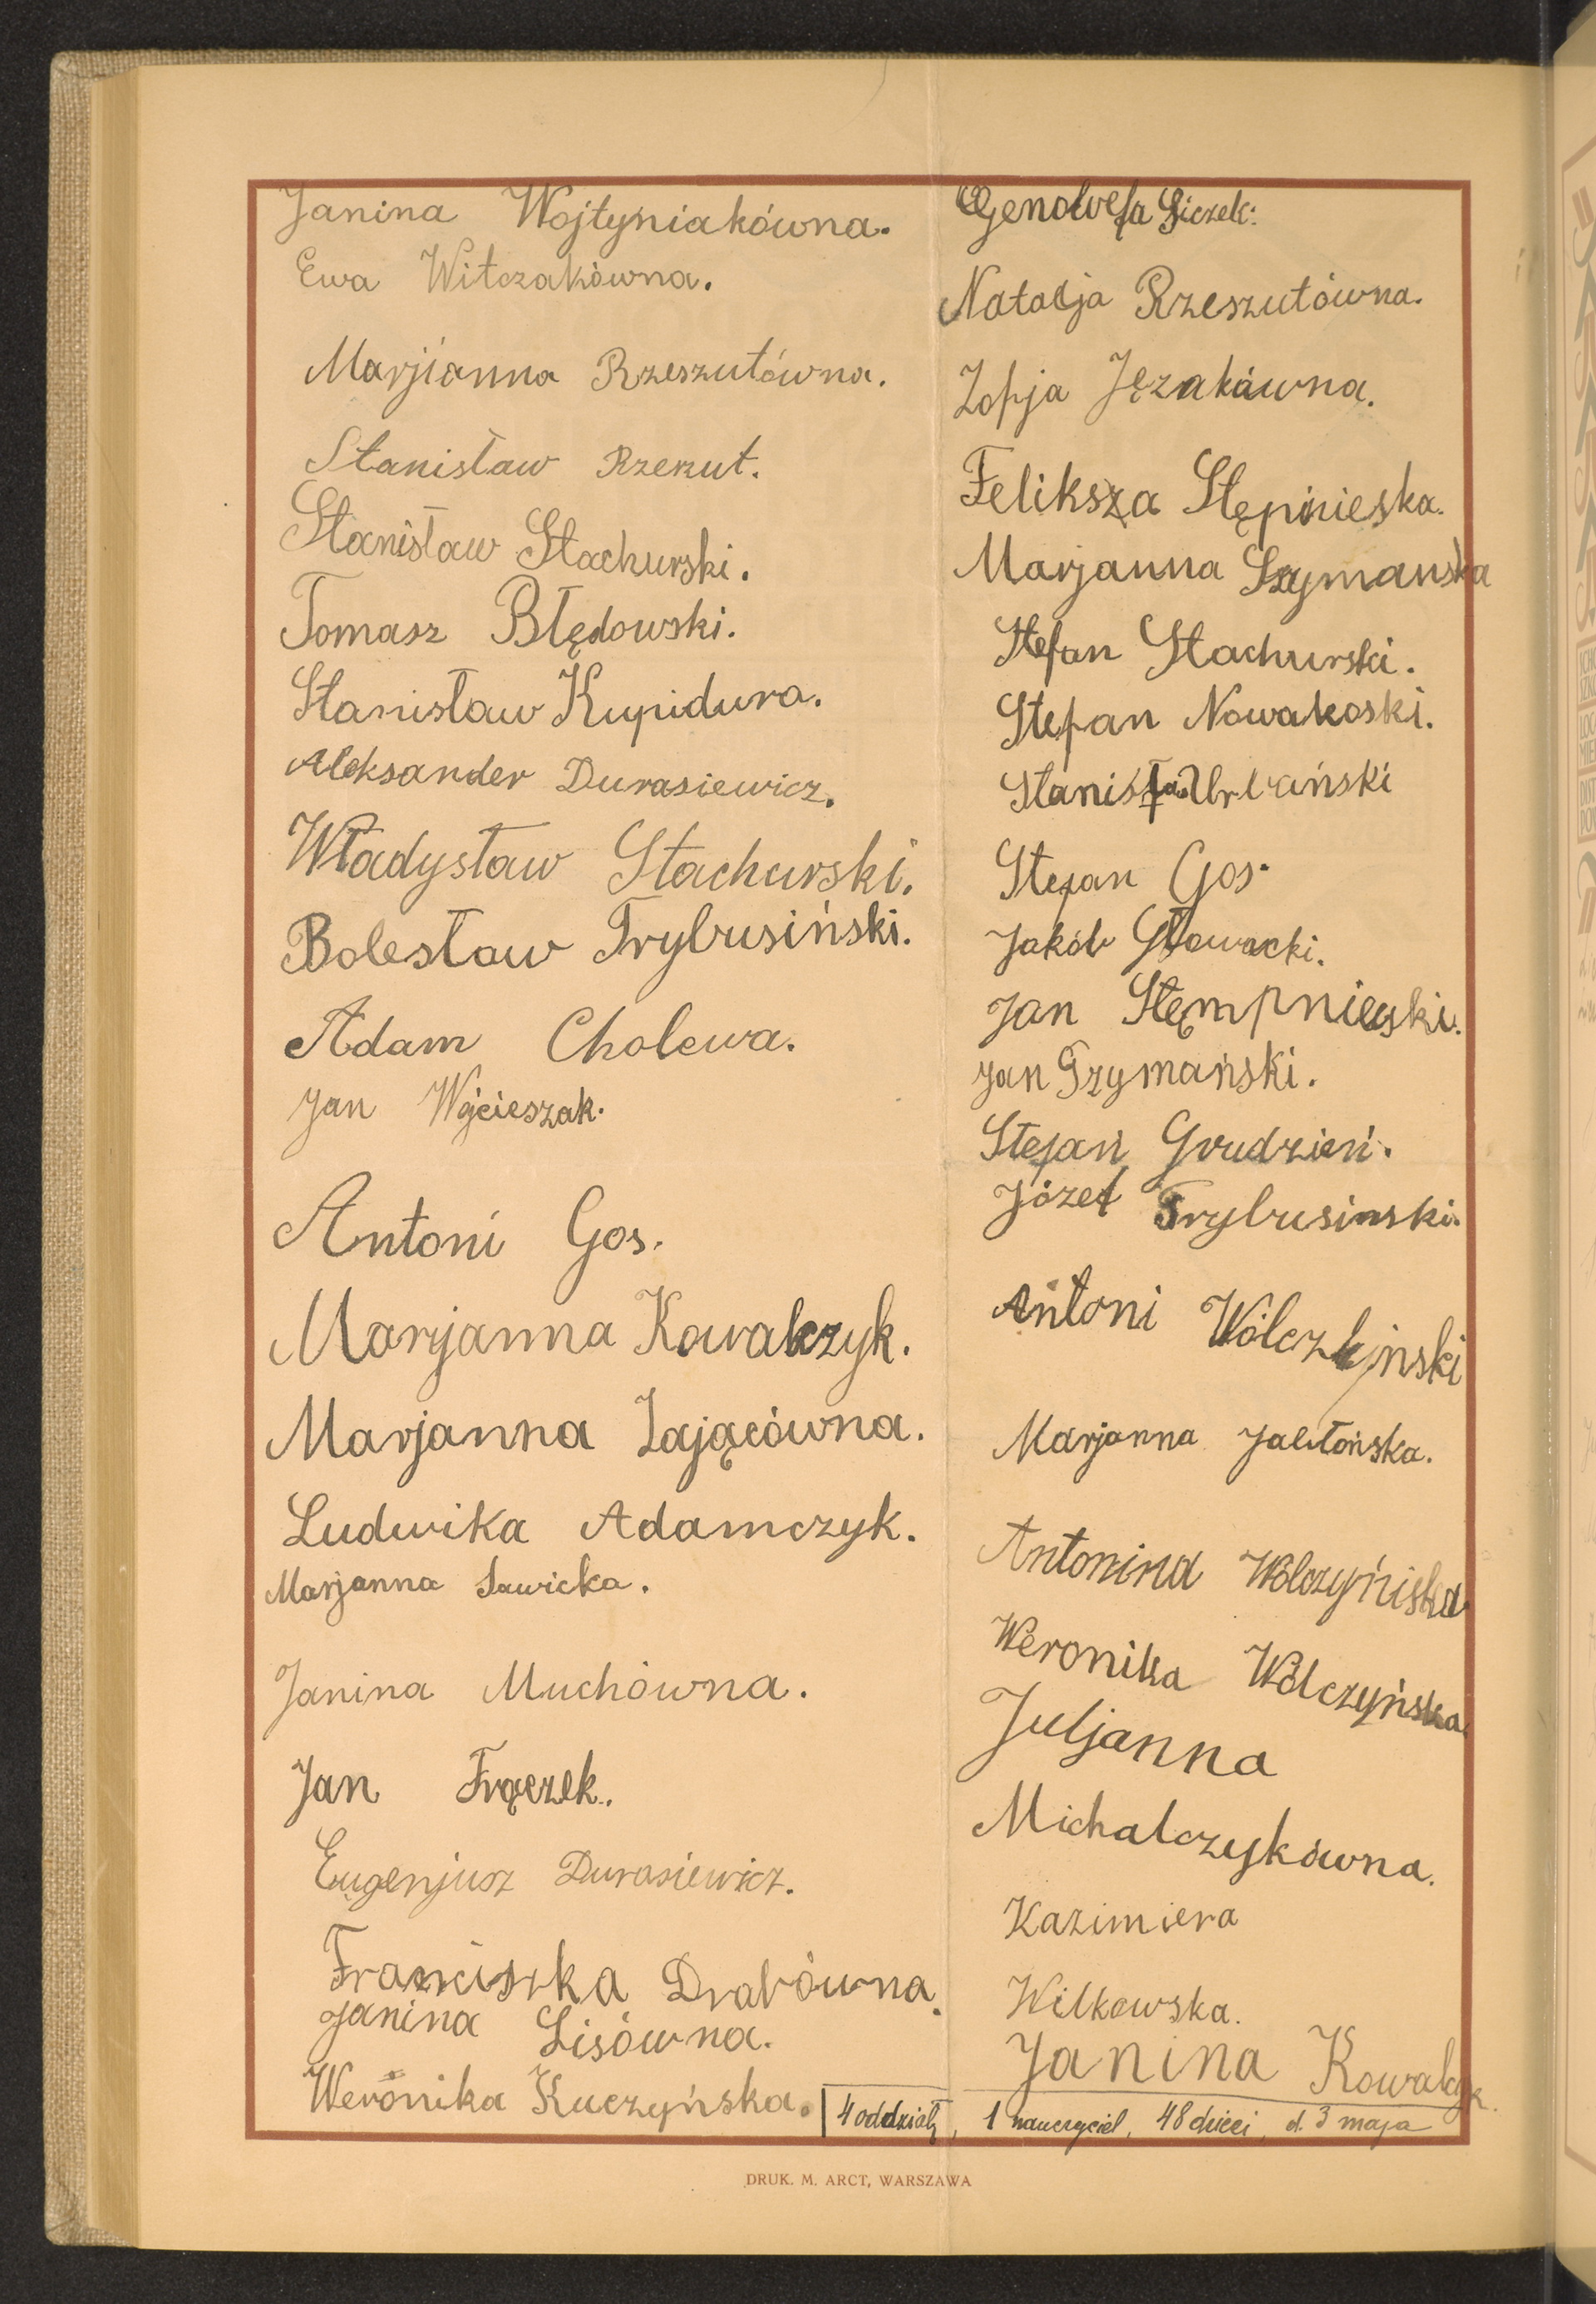 Janina Wojtyniakówna.
Ewa Witczakówna.
Marjianna Rzeszutówna.
Stanisław Rzerut.
Stanisław Stachurski.
Tomasz Błędowski.
Stanisław Kupidura.
Aleksander Durasiewicz.
Władysław Stachurski.
Bolesław Trybusiński.
Adam Cholewa.
Jan Wojcieszak.
Antoni Gos.
Marjanna Kowalczyk.
Marjanna Zającówna.
Ludwika Adamczyk.
Marjanna Sawicka.
Janina Muchówna.
Jan Frączek.
Eugenjusz Durasiewicz.
Franciszka Drabówna.
Janina Lisówna.
Weronika Kuczyńska.
Genowefa Siczek.
Natalja Rzeszutówna.
Zofja Jęzakówna.
Feliksza Stępnieska.
Marjanna Szymanska
Stefan Stachurski.
Stefan Nowakoski.
Urbański
Stefan Gos.
Jakób Głowacki.
Jan Stempnieski.
Jan Szymański.
Stefań Grudzień.
Józef Trybusinski.
Antoni
Marjanna Jabłońska.
Antonina Wólczyńiska
Weronika Wólczyńska.
Juljanna
Michalczykówna.
Kazimiera
Wilkowska.
Janina Kowalczyk.
4 oddziały, 1 nauczyciel, 48 dzieci, d. 3 maja
DRUK. M. ARCT, WARSZAWA